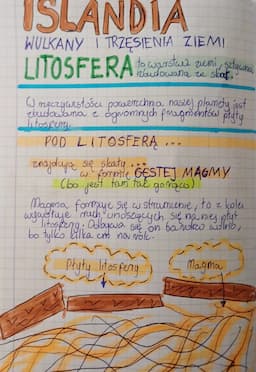 ISLANDIA
WULKANY I TRZĘSIENIA ZIEMI
LITOSFERA to warstwa ziemi, sztywna,
zbudowana ze skał.
W rzeczywistości powierzchnia naszej planety jest
zbudowana z ogromnych fragmentów płyty
litosfery.
POD LITOSFERĄ ...
znajdują się skały ...
w formie GĘSTEJ MAGMY
(bo jest tam tak gorąco)
Magma formuje się w strumienie, to z kolei
wywołuje ruch unoszących się na niej płyt
litosfery. Odbywa się on bardzo wolno,
bo tylko kilka cm na rok.
Płyty litosfery
Magma